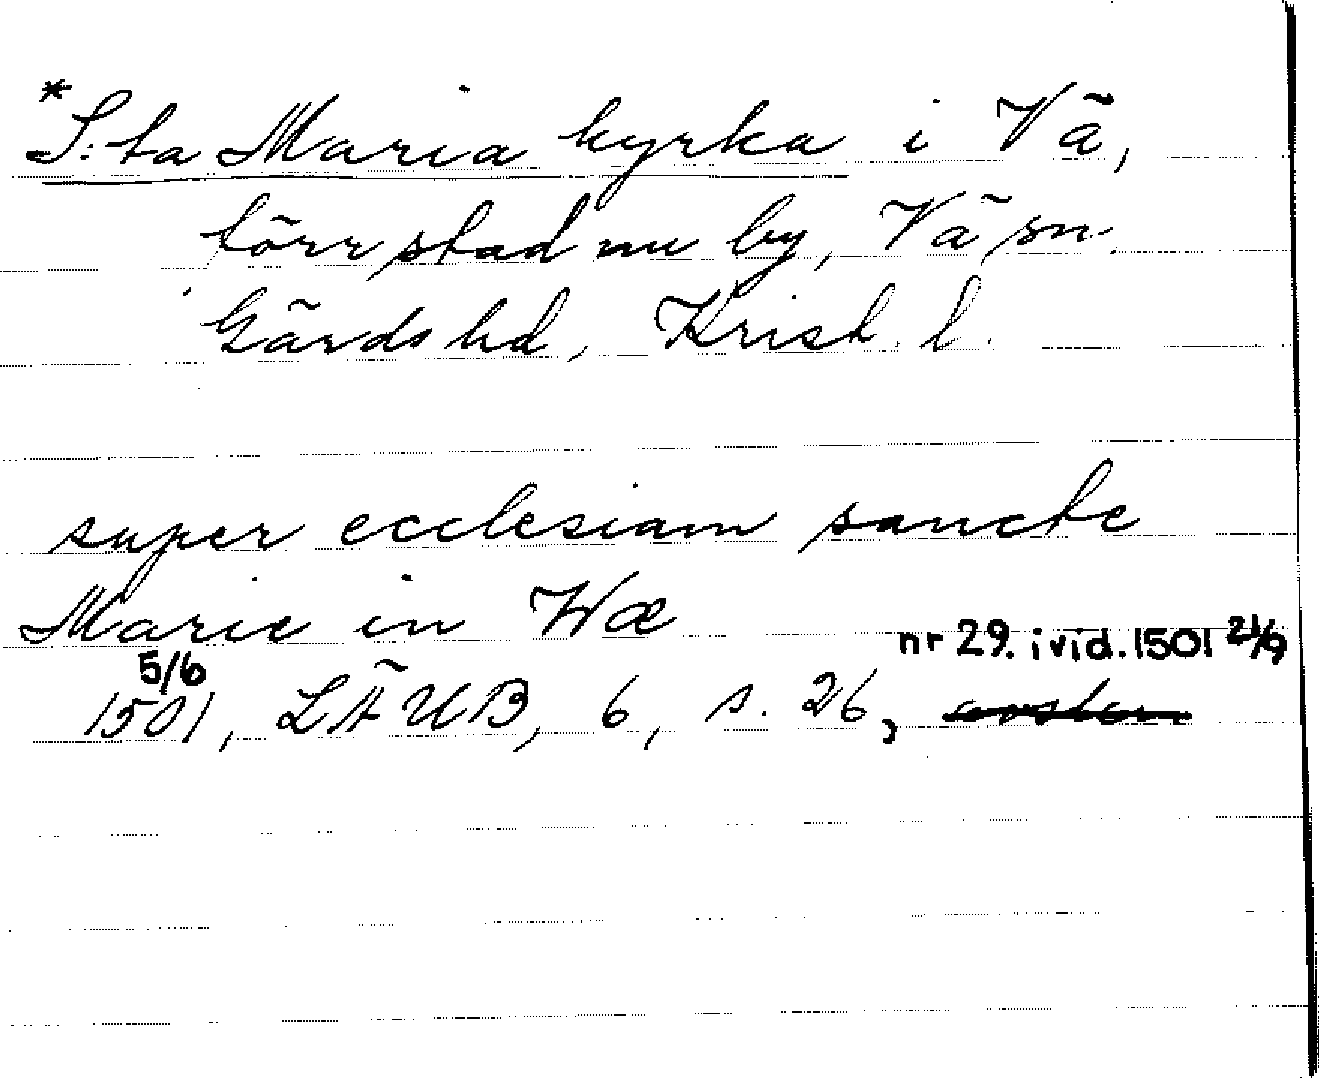 *S:ta Maria kyrka i Vä,
förr stad nu by, Vä sn.
Gärds hd, Krist. l.
super ecclesiam sancte
Marie in Wæ
nr 29. i vid. 1501 21/9
5/6
1501, LÄUB, 6, s. 26,